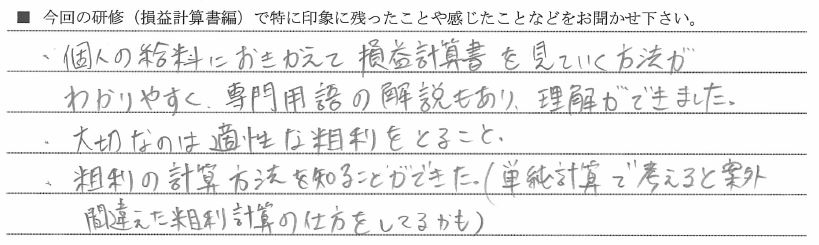 ■ 今回の研修（損益計算書編）で特に印象に残ったことや感じたことなどをお聞かせ下さい。
・個人の給料におきかえて損益計算書を見ていく方法が
わかりやすく、専門用語の解説もあり、理解ができました。
・大切なのは適性な粗利をとること、
・粗利の計算方法を知ることができた。（単純計算で考えると案外
間違えた粗利計算の仕方をしてるかも）